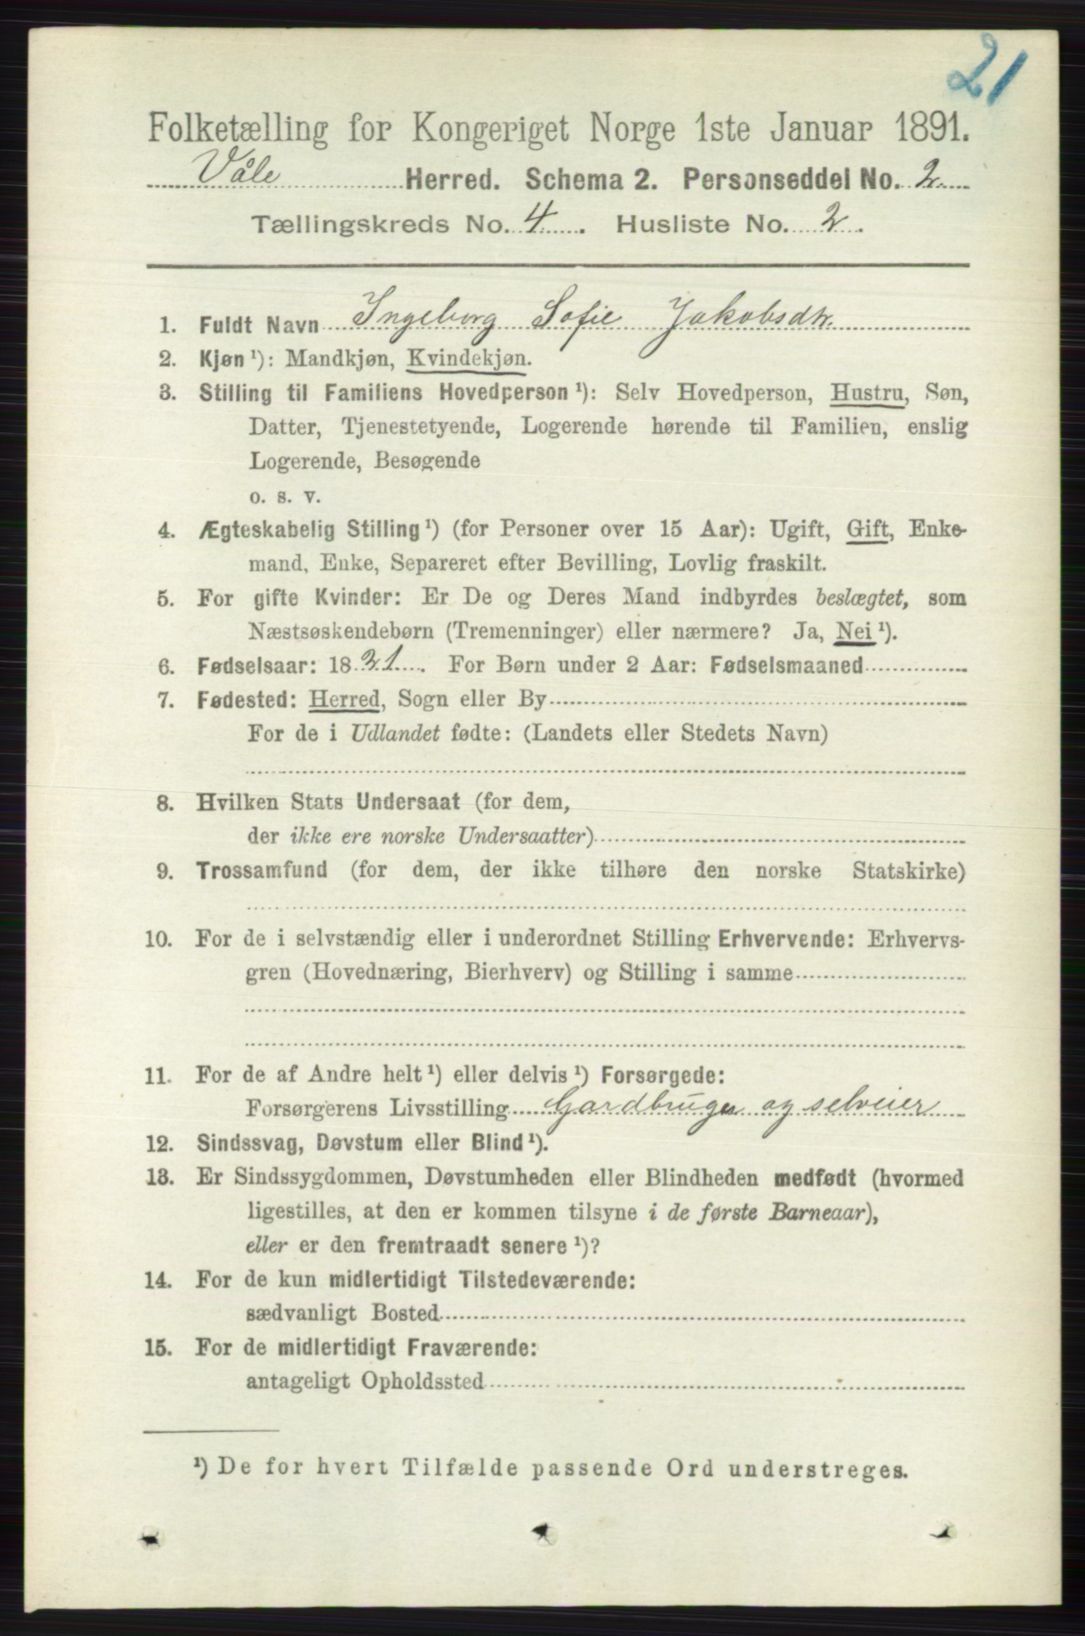 21
Folketælling for Kongeriget Norge 1ste Januar 1891.
Våle Herred. Schema 2. Personseddel No. 2
Tællingskreds No. 4. Husliste No. 2.
1. Fuldt Navn Ingeborg Sofie Jakobsdtr.
2. Kjøn ¹): Mandkjøn, Kvindekjøn.
3. Stilling til Familiens Hovedperson ¹): Selv Hovedperson, Hustru, Søn,
Datter, Tjenestetyende, Logerende hørende til Familien, enslig
Logerende, Besøgende
o. s. v.
4. Ægteskabelig Stilling ¹) (for Personer over 15 Aar): Ugift, Gift, Enke-
mand, Enke, Separeret efter Bevilling, Lovlig fraskilt.
5. For gifte Kvinder: Er De og Deres Mand indbyrdes beslægtet, som
Næstsøskendebørn (Tremenninger) eller nærmere? Ja, Nei ¹).
6. Fødselsaar: 1821. For Børn under 2 Aar: Fødselsmaaned
7. Fødested: Herred, Sogn eller By
For de i Udlandet fødte: (Landets eller Stedets Navn)
8. Hvilken Stats Undersaat (for dem,
der ikke ere norske Undersaatter)
9. Trossamfund (for dem, der ikke tilhøre den norske Statskirke)
10. For de i selvstændig eller i underordnet Stilling Erhvervende: Erhvervs-
gren (Hovednæring, Bierhverv) og Stilling i samme
11. For de af Andre helt ¹) eller delvis ¹) Forsørgede:
Forsørgerens Livsstilling Gardbruger og selveier
12. Sindssvag, Døvstum eller Blind ¹).
13. Er Sindssygdommen, Døvstumheden eller Blindheden medfødt (hvormed
ligestilles, at den er kommen tilsyne i de første Barneaar),
eller er den fremtraadt senere ¹)?
14. For de kun midlertidigt Tilstedeværende:
sædvanligt Bosted
15. For de midlertidigt Fraværende:
antageligt Opholdssted
¹) De for hvert Tilfælde passende Ord understreges.